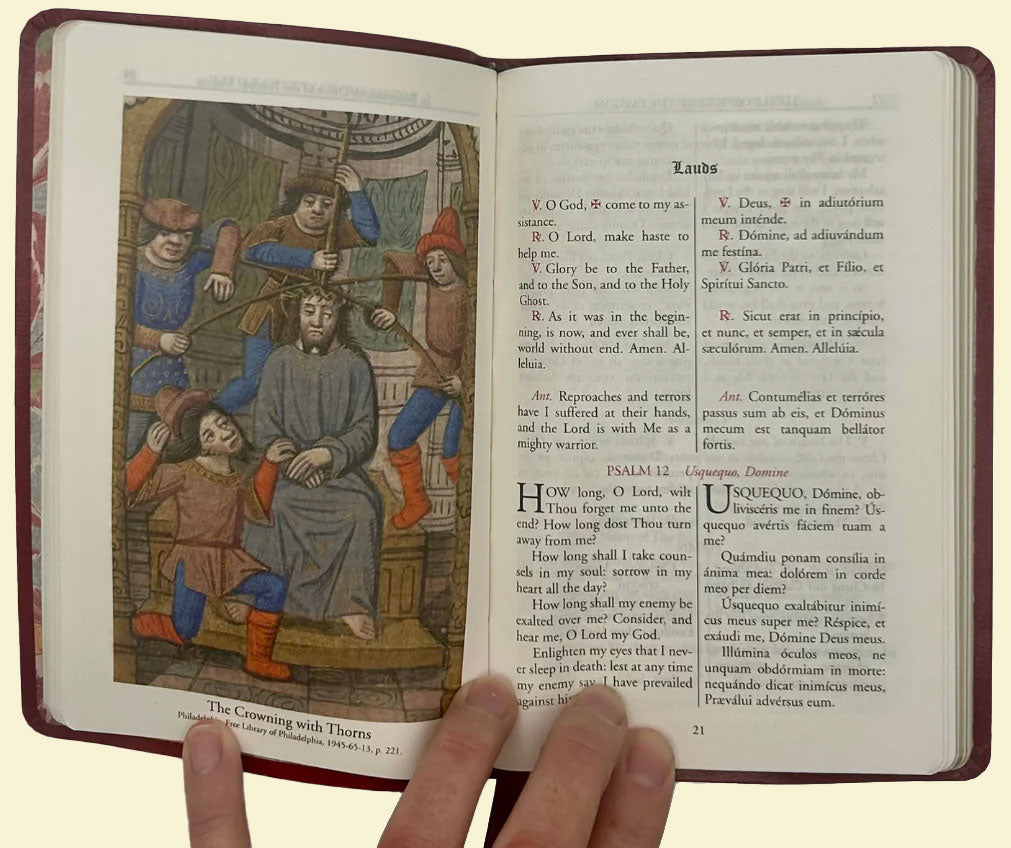 The Crowning with Thorns
Philadelphia, Free Library of Philadelphia, 1945-65-13, p. 221.
Lauds
℣. O God, ✠ come to my as-
sistance.
℟. O Lord, make haste to
help me.
℣. Glory be to the Father,
and to the Son, and to the Holy
Ghost.
℟. As it was in the begin-
ning, is now, and ever shall be,
world without end. Amen. Al-
leluia.
Ant. Reproaches and terrors
have I suffered at their hands,
and the Lord is with Me as a
mighty warrior.
℣. Deus, ✠ in adiutórium
meum inténde.
℟. Dómine, ad adiuvándum
me festína.
℣. Glória Patri, et Fílio, et
Spirítui Sancto.
℟. Sicut erat in princípio,
et nunc, et semper, et in sǽcula
sæculórum. Amen. Allelúia.
Ant. Contumélias et terróres
passus sum ab eis, et Dóminus
mecum est tanquam bellátor
fortis.
PSALM 12 Usquequo, Domine
HOW long, O Lord, wilt
Thou forget me unto the
end? How long dost Thou turn
away from me?
How long shall I take coun-
sels in my soul: sorrow in my
heart all the day?
How long shall my enemy be
exalted over me? Consider, and
hear me, O Lord my God.
Enlighten my eyes that I nev-
er sleep in death: lest at any time
my enemy say, I have prevailed
against
USQUEQUO, Dómine, ob-
liviscéris me in finem? Ús-
quequo avértis fáciem tuam a
me?
Quámdiu ponam consília in
ánima mea: dolórem in corde
meo per diem?
Úsquequo exaltábitur inimí-
cus meus super me? Réspice, et
exáudi me, Dómine Deus meus.
Illúmina óculos meos, ne
unquam obdórmiam in morte:
nequándo dicat inimícus meus,
Præválui advérsus eum.
21